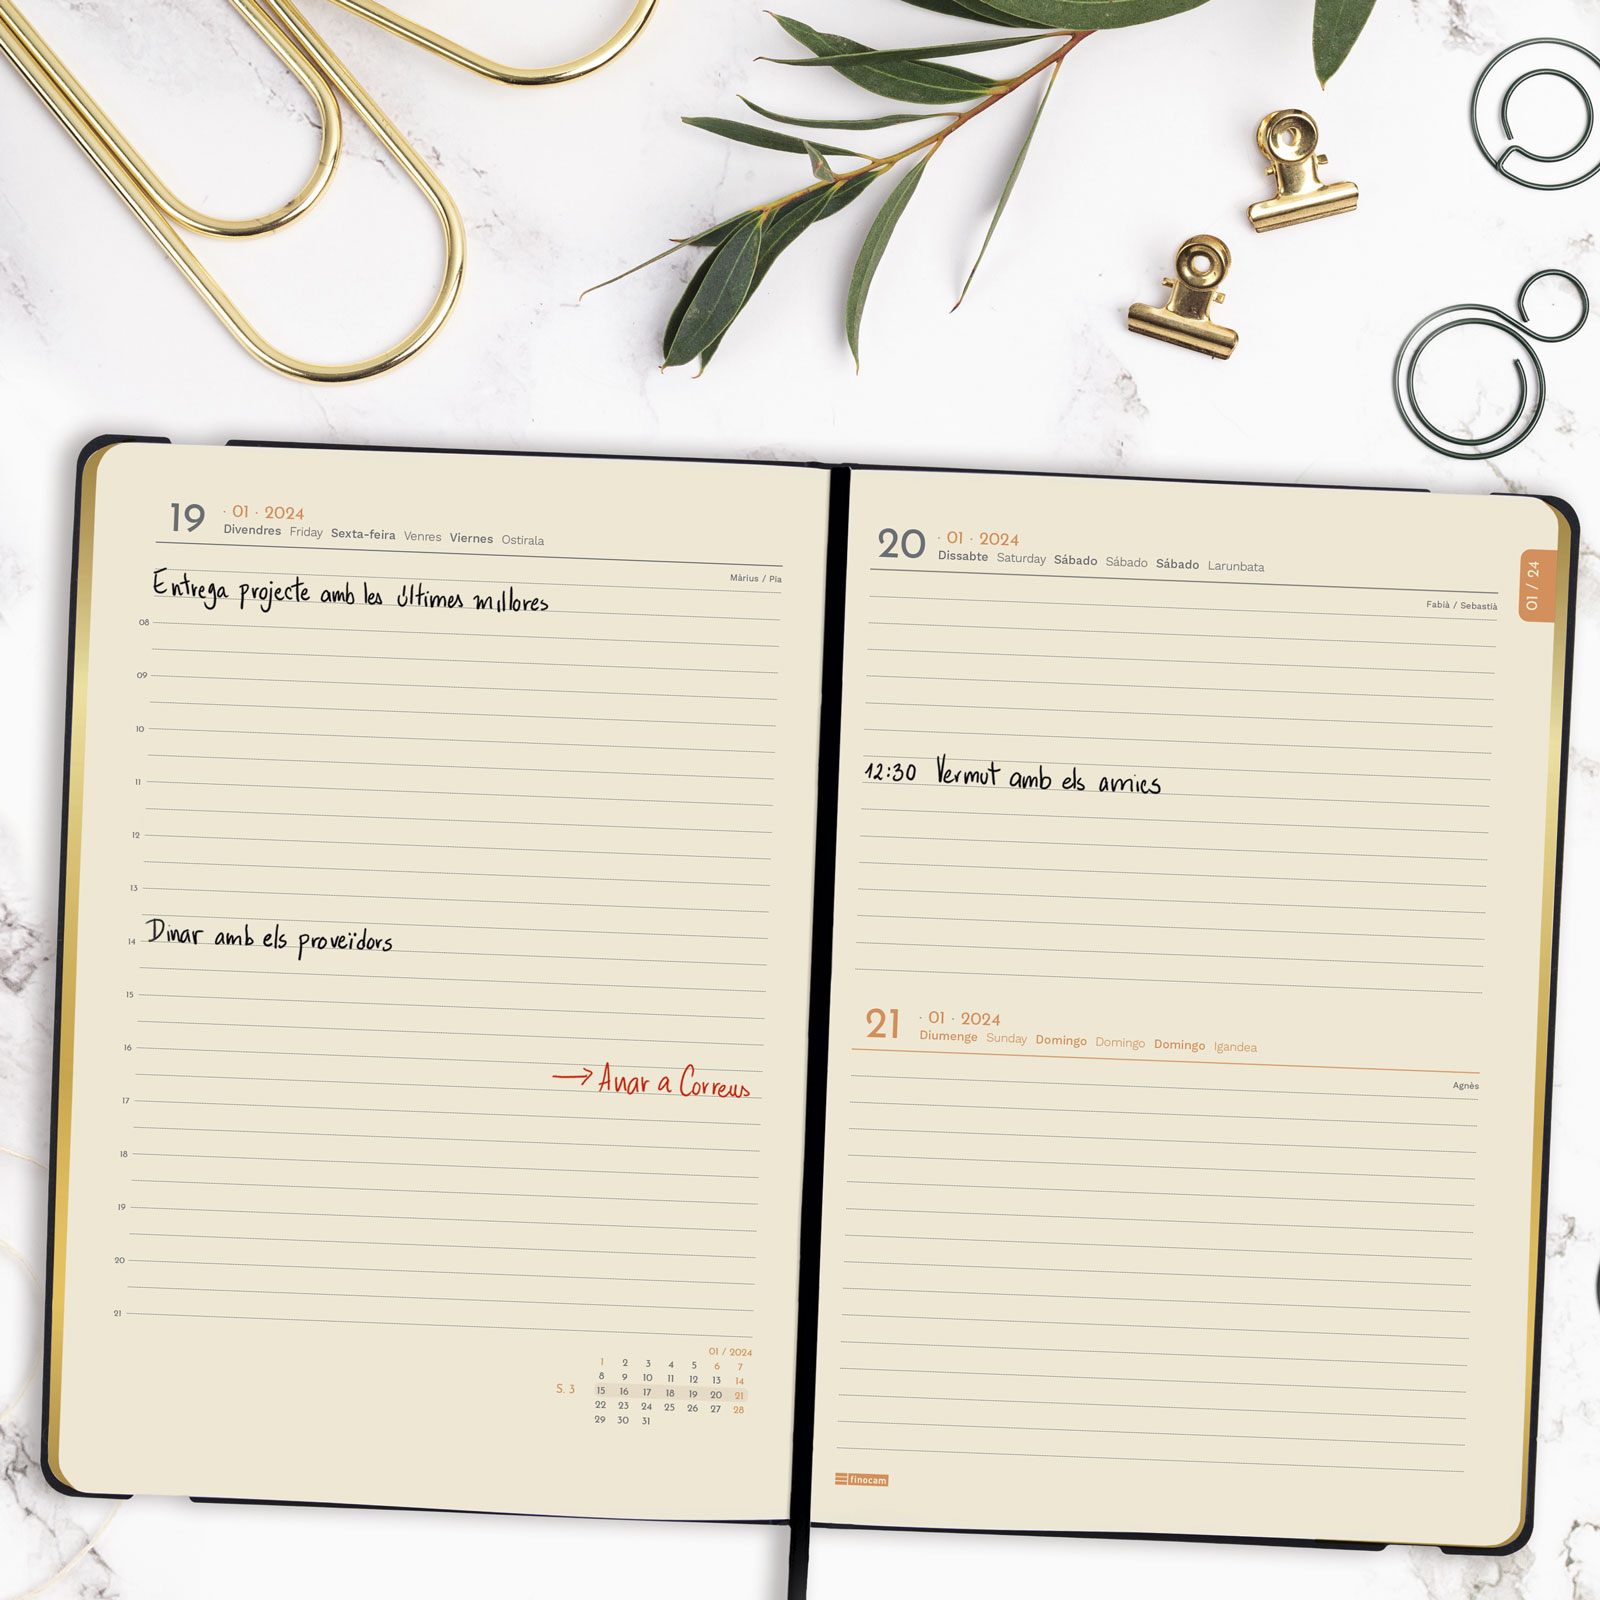 19 · 01 · 2024
Divendres Friday Sexta-feira Venres Viernes Ostirala
Màrius / Pia
Entrega projecte amb les últimes millores
08
09
10
11
12
13
14 Dinar amb els proveïdors
15
16
→ Anar a Correus
17
18
19
20
21
01 / 2024
1 2 3 4 5 6 7
8 9 10 11 12 13 14
S. 3 15 16 17 18 19 20 21
22 23 24 25 26 27 28
29 30 31
20 · 01 · 2024
Dissabte Saturday Sábado Sábado Sábado Larunbata
Fabià / Sebastià
01 / 24
12:30 Vermut amb els amics
21 · 01 · 2024
Diumenge Sunday Domingo Domingo Domingo Igandea
Agnès
finocam